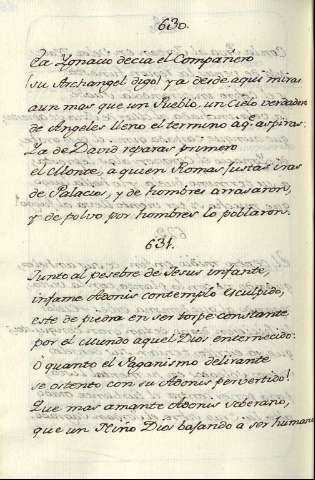 630.
Ea Ygnacio decia el Compañero
(su Archangel digo) ya desde aqui miras
aun mas que un Pueblo, un Cielo verdadero
de Angeles lleno el termino á q.e aspiras:
La de David reparas primero
el Monte, a quien Romas justas iras
de Palacios, y de hombres arrasaron,
y de polvo por hombres lo poblaron.
631.
Junto al pesebre de Jesus infante,
infame Adonis contemplo esculpido,
este de piedra en ser torpe constante
por el mundo aquel Dios enternecido:
ó quanto el Paganismo delirante
se ostento con su Adonis pervertido!
Que mas amante Adonis soberano,
que un Niño Dios bajando a ser humano